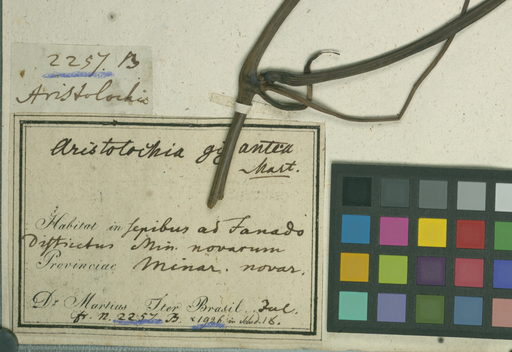 2257. B
Aristolochia
Aristolochia gigantea
Mart.
Habitat in sepibus ad Fanado
Districtus Min. novarum
Provinciae Minar. novar.
Dr. Martius Iter Brasil. Jul.
fr. n. 2257 B.